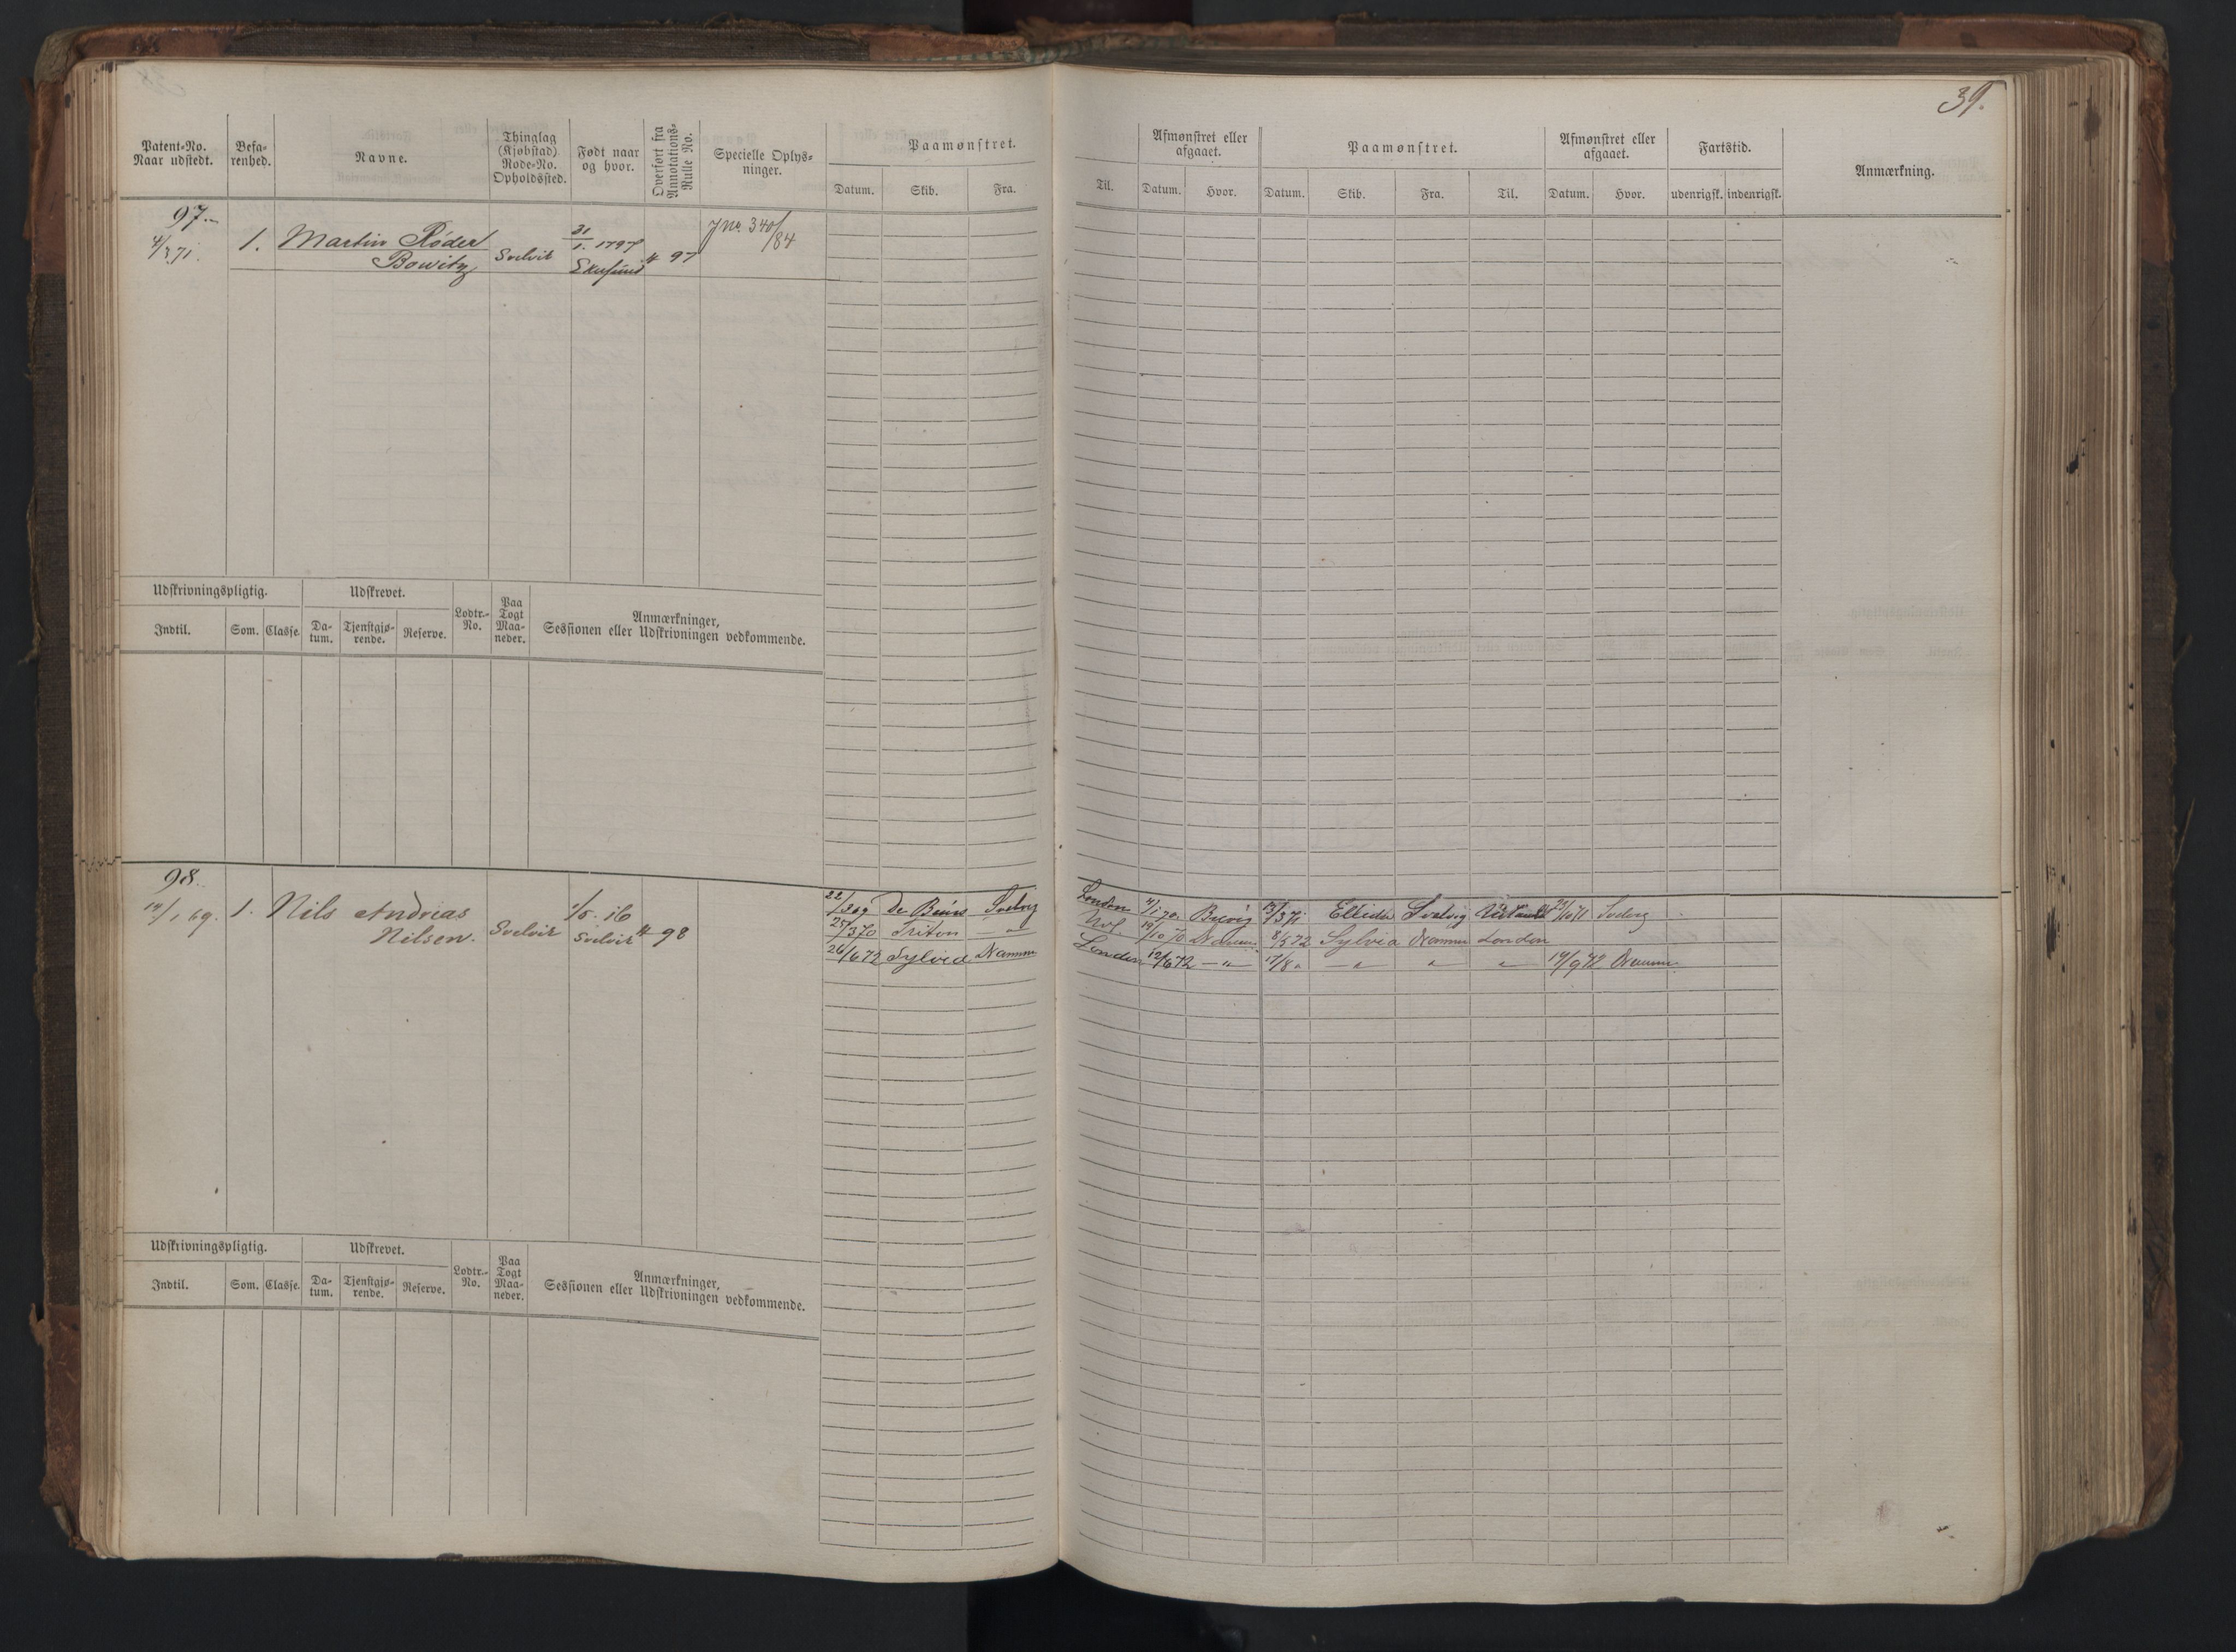 39.
Patent-No. Naar udstedt.
Befa-renhed.
Navne.
Thinglag (Kjøbstad) Rode-No. Opholdssted.
Født naar og hvor.
Overført fra Annotations-Rulle No.
Specielle Oplys-ninger.
Paamønstret.
Datum. Skib. Fra.
Til.
Afmønstret eller afgaaet.
Datum. Hvor.
Paamønstret.
Datum. Skib. Fra. Til.
Afmønstret eller afgaaet.
Datum. Hvor.
Fartstid.
udenrigsk. indenrigsk.
Anmærkning.
97.
4/3 71. 1. Martin Røder Bowitz Svelvik 31/1. 1797 97
Jno. 340/84
Udskrivningspligtig. Udskrevet. Lodtr.-No. Paa Togt Maa-neder. Anmærkninger, Sessionen eller Udskrivningen vedkommende.
Indtil. Som. Classe. Da-tum. Tjenstgjø-rende. Reserve.
98.
14/1 69. 1. Nils Andreas Nilsen. Svelvik 1/5. 16 Svelvik 98
22/3 69 De Svelvig London 4/1 70 Brevig 13/3 71 Ellida Svelvig 71 Svelvig
25/3 70 Triton — " — 19/10 70 8/5 72 Sylvia Dramm London
26/6 72 Sylvia Dramm London 12/6 72 — " 17/8 " — " " " 14/9 72 Dramm
Udskrivningspligtig. Udskrevet. Lodtr.-No. Paa Togt Maa-neder. Anmærkninger, Sessionen eller Udskrivningen vedkommende.
Indtil. Som. Classe. Da-tum. Tjenstgjø-rende. Reserve.